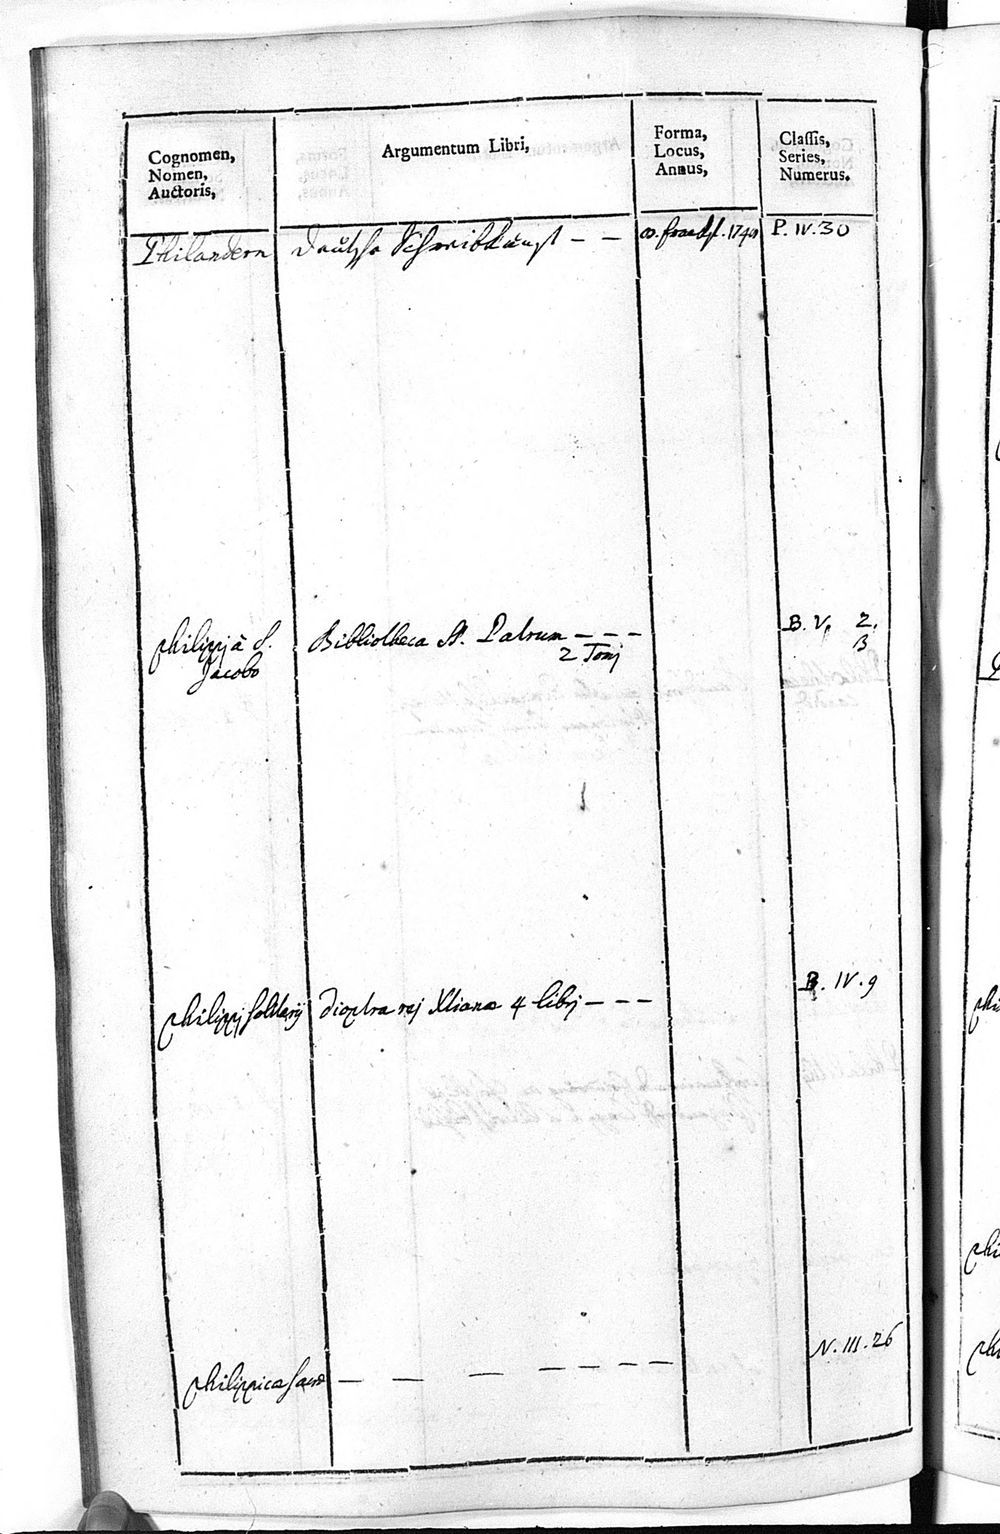 Cognomen,
Nomen,
Auctoris,
Argumentum Libri,
Forma,
Locus,
Annus,
Classis,
Series,
Numerus.
Philandern Deutsche Schreibkunst – – 8. 174 P. IV. 30
Philippj à S. Bibliotheca SS. Patrum – – – B. V, 2.
Jacobo 2 Tomj 3
Philippj Solitarij Dioptra rej Xtianæ 4 libri – – – B. IV. 9
Philippica Sacra – – – – – – – N. III. 26